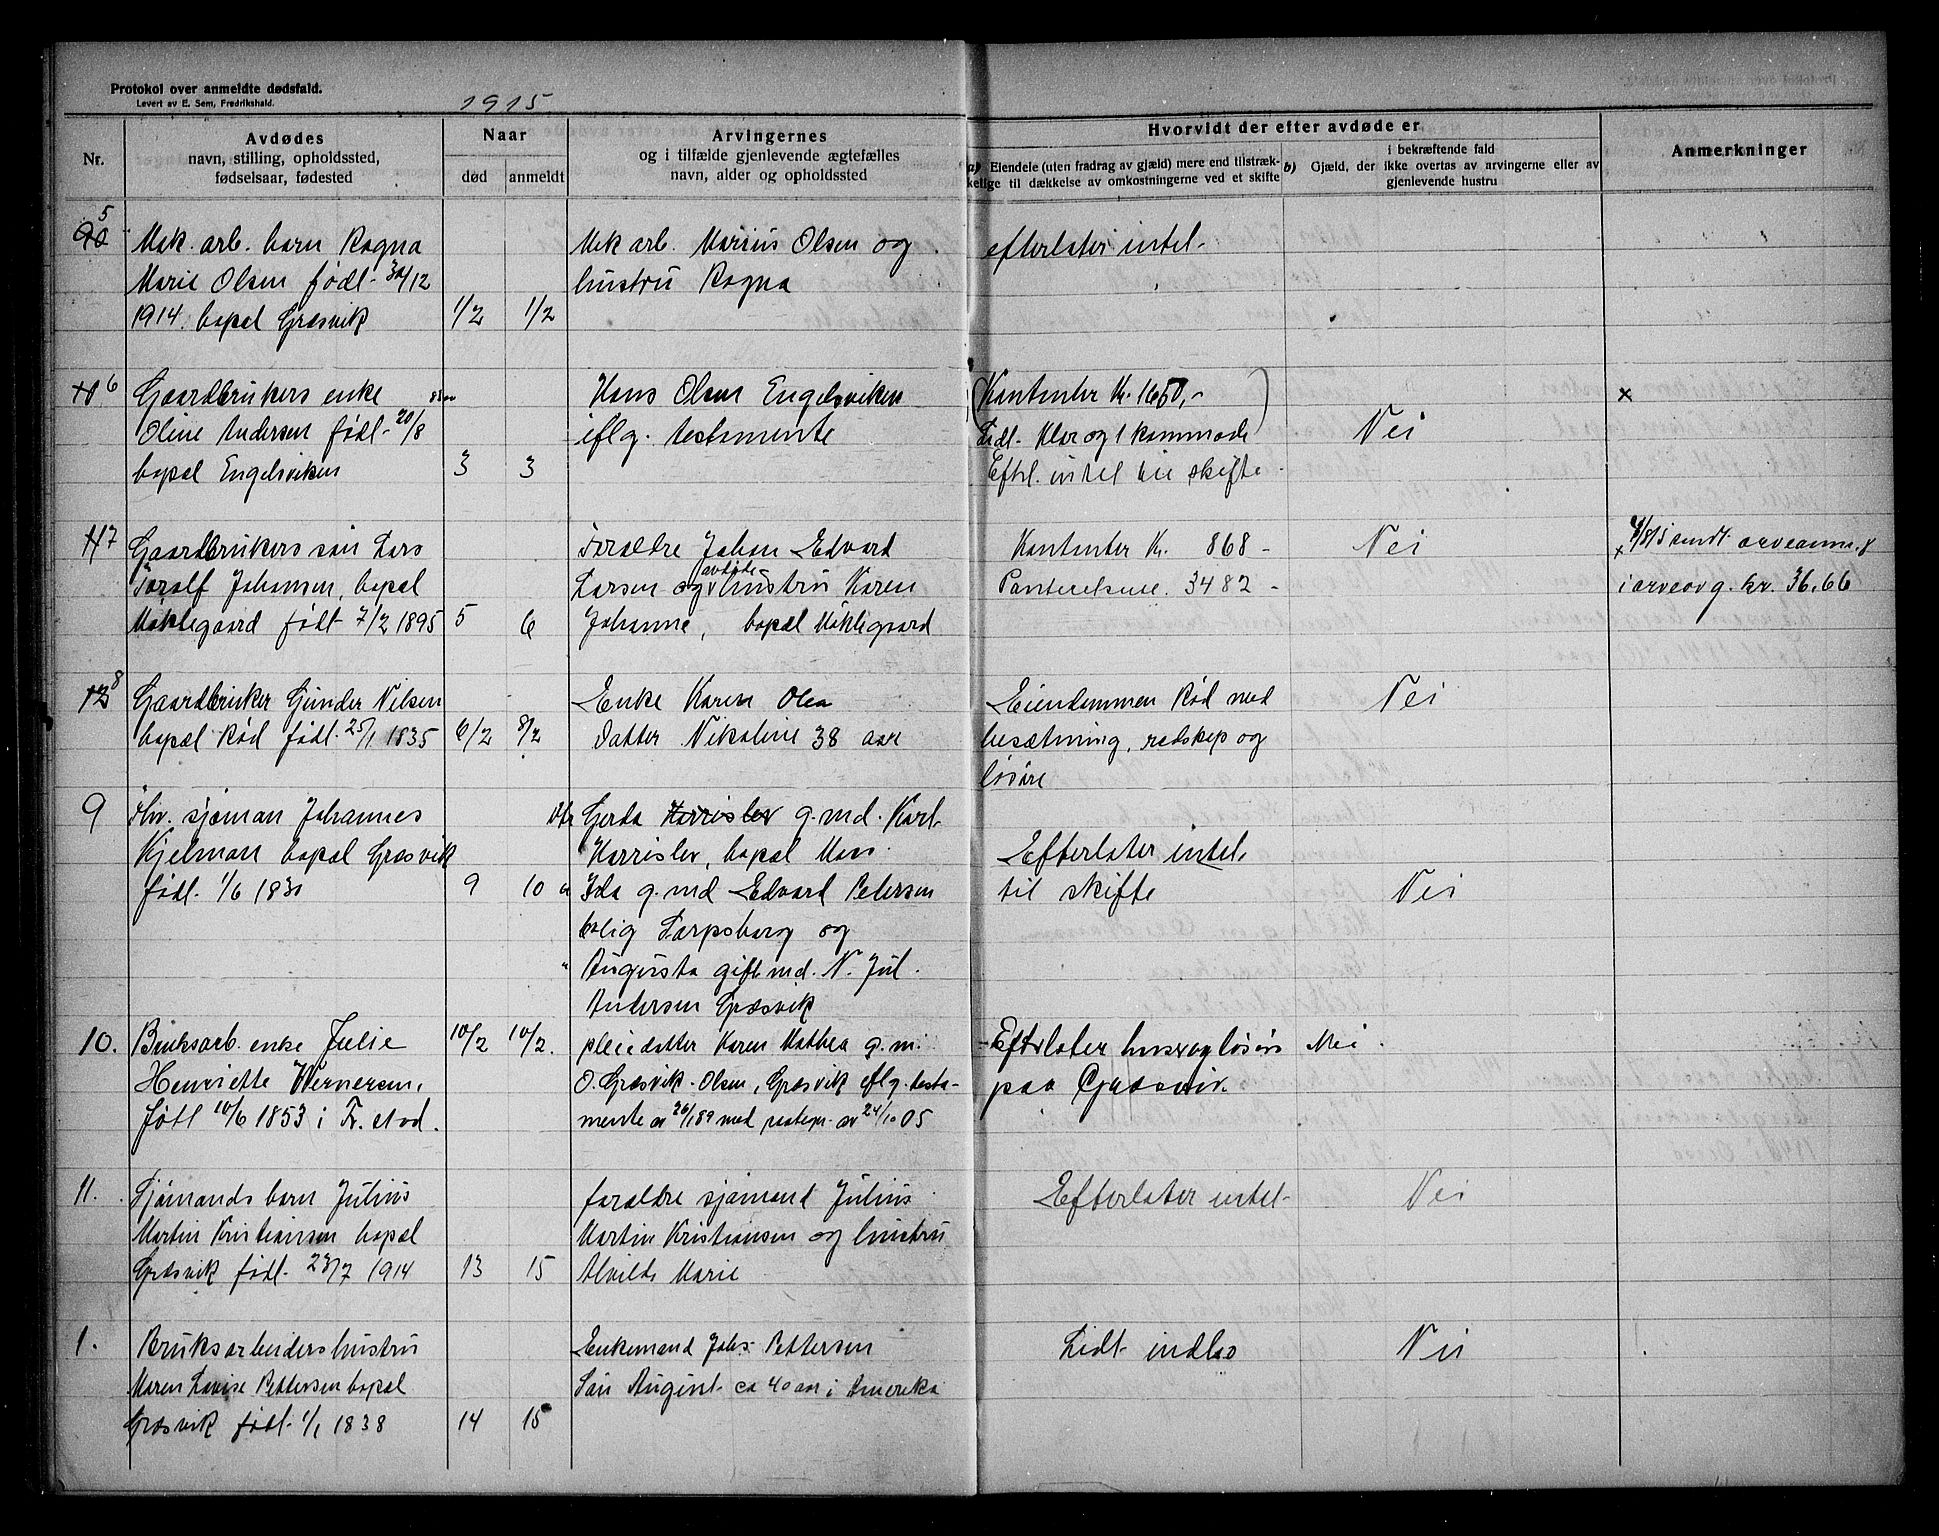 Protokol over anmeldte dødsfald.
Levert av E. Sem, Fredrikshald.
1915
Nr.
Avdødes
navn, stilling, opholdssted,
fødselsaar, fødested
Naar
død anmeldt
Arvingernes
og i tilfælde gjenlevende ægtefælles
navn, alder og opholdssted
Hvorvidt der efter avdøde er
a) Eiendele (uten fradrag av gjæld) mere end tilstræk-
kelige til dækkelse av omkostningerne ved et skifte
i bekræftende fald
b) Gjæld, der ikke overtas av arvingerne eller av
gjenlevende hustru
Anmerkninger
5
Mek. arb. barn Ragna
Marie Olsen født 30/12
1914. bopæl Græsvik 1/2 1/2
Mek arb. Marius Olsen og
hustru Ragna
efterlater intet
6
Gaardbrukers enke
Oline Andersen født 20/8
bopæl Engelsviken 3 3
Hans Olsen Engelsviken
iflg. testamente
(Kontanter Kr. 1650,-)
Lidt klær og 1 kommode
Efterl. intet til skifte
Nei
x
7
Gaardbrukers søn Lars
Toralf Johansen, bopæl
Møklegaard født 7/2 1895 5 6
ForæLdre Johan Edvard
Larsen og avdøde hustru Karen
Johanne, bopæl Møklegaard
Kontanter Kr. 868 -
3482 -
Nei
x 4/8 15 sendt arveanm. 8
i arveavg. kr. 36.66
12 8
Gaardbruker Gunder Nilsen
bopæl Rød født 25/1 1835 6/2 8/2
Enke Karen Olea
Datter Nikoline 38 aar
Eiendommen Rød med
besætning, redskap og
løsøre
Nei
9
Fhv. sjøman Johannes
Kjelman bopæl Græsvik
født 1/6 1830 9 10
Dtr Gerda Harrislev g.md. Karl
Harrislev, bopæl Moss
Ida g.md Edvard Petersen
bolig Sarpsborg og
" Augusta gift md. N. Jul.
Andersen Græsvik
Efterlater intet
til skifte
Nei
10.
Bruksarb. enke Julie
Henriette Wernersen,
født 10/6 1853 i Fr.stad. 10/2 10/2.
pleiedatter Karen Mathea g.m.
O. Græsvik-Olsen, Græsvik iflg. testa-
mente av 26/1 89 med paategn. av 24/10 05
Efterlater hus og løsøre
paa Græsvik.
Nei.
11.
Sjømands barn Julius
Martin Kristiansen bopæl
Græsvik født 23/7 1914 13 15
forældre sjømand Julius
Martin Kristiansen og hustru
Alvilde Marie
Efterlater intet
Nei
1.
Bruksarbeiders hustru
Maren Lovise Pettersen bopæl
Græsvik født 1/1 1838 14 15
Enkemand Johs. Pettersen
Søn August ca 40 aar i Amerika
Lidt indbo
Nei